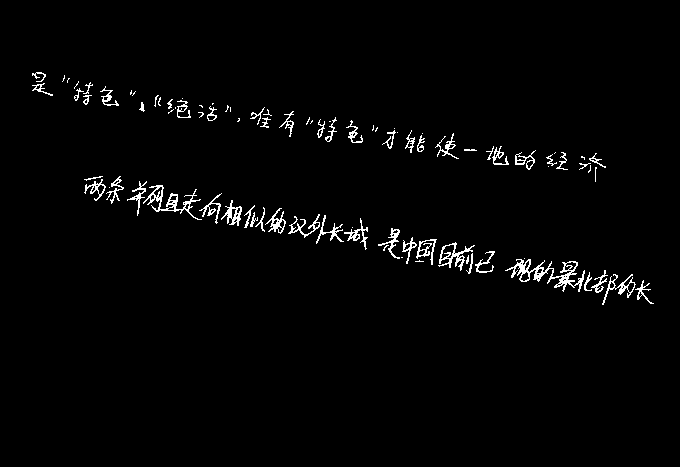 是“特色”、“绝活”，唯有“特色”才能使一地的经济
两条并列且走向相似的汉外长城是中国目前已现的最北部的长